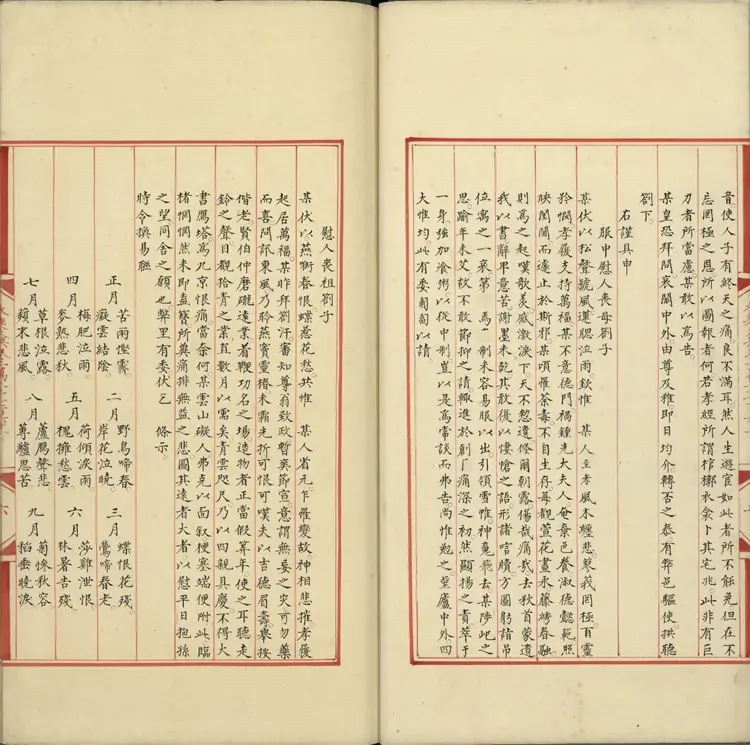 音使人子有終天之痛良不滿耳然人生遊宦如此者所不能免但在不
忘罔極之恩所以圖報者何若孝經所謂棺槨衣衾卜其宅兆此非有巨
刀者所當慮某敢以為告
某皇恐拜問哀闈中外由尊及稚即日均介轉否之泰有弊邑驅使拱聽
劉下
右謹具申
服中慰人喪母劄子
某伏以松聲號風蘧腮泣雨欽惟 某人至孝風木纏悲蓼莪罔極百靈
矜憫孝履支持萬福某不意德門禍鍾先大夫人奄棄色養淑德懿範照
映閨閫而遽止於斯邪某頃罹荼毒不自生存每覩萱花晝永藤綉春融
則為之起嘆歌羡感激淚下天不憖遺倏爾朝露傷哉痛哉去秋首蒙遣
我以書辭平意苦謝墨未乾其敢復以悽愴之語形諸唁牘方圖躬請吊
位寓之一哀第 馬 制未容易服以出引領雪惟神䰟飛去某陟屺之
思踰年未艾故不敢節抑之請輙進於創𠂆痛深之初然顯揚之責萃于
一身強加飡粥以從中制豈以是為常談而弗告尚惟勉之堊廬中外四
大惟均此有委匍匐以請
慰人喪祖劄子
某伏以燕啣春恨蝶惹花愁共惟 某人省元乍罹變故神相悲摧孝履
起居萬福某昨拜劉汗審知尊翁致政暫奐節宣意謂無妄之灾可勿藥
而喜問訊東風乃聆燕賓靈椿未霜先折可恨可嘆夫以吉德眉壽舉按
偕老賢伯仲磨礲遠業着鞭功名之場造物者正當假筭年使之耳聽走
鈴之聲目觀拾青之業直數月以需矣青雲咫尺乃以四親具慶不得大
書鴈塔為九京恨痛當奈何某雲山礙人弗克以面叙梗塞端便附此臨
楮惘惘然未即盍簪所冀痛排無益之悲圖其遠者大者以慰平日抱孫
之望同舍之願也弊里有委伏乞 條示
時令撰易聯
正月 苦雨慳霽 癡雲結陰 二月 野鳥啼春 岸花泣曉 三月 蝶恨花殘 鶯啼春老
四月 梅肥泣雨 麥熟悲秋 五月 荷傾淚雨 槐擁愁雲 六月 莎雞泄恨 林暑告殘
七月 草根泣露 蘋末悲風 八月 蘆鴈聲悲 蓴鱸思苦 九月 菊慘秋容 稻垂晚淚